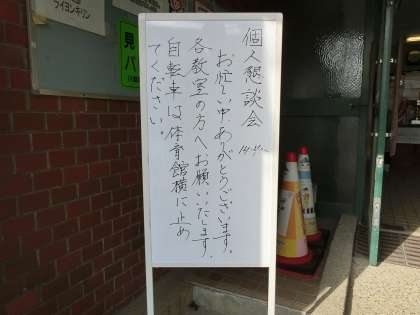 個人懇談会
お忙しい中、ありがとうございます。
各教室の方へお願いいたします。
自転車は体育館横に止め
てください。
ライオンキリン
見
パ